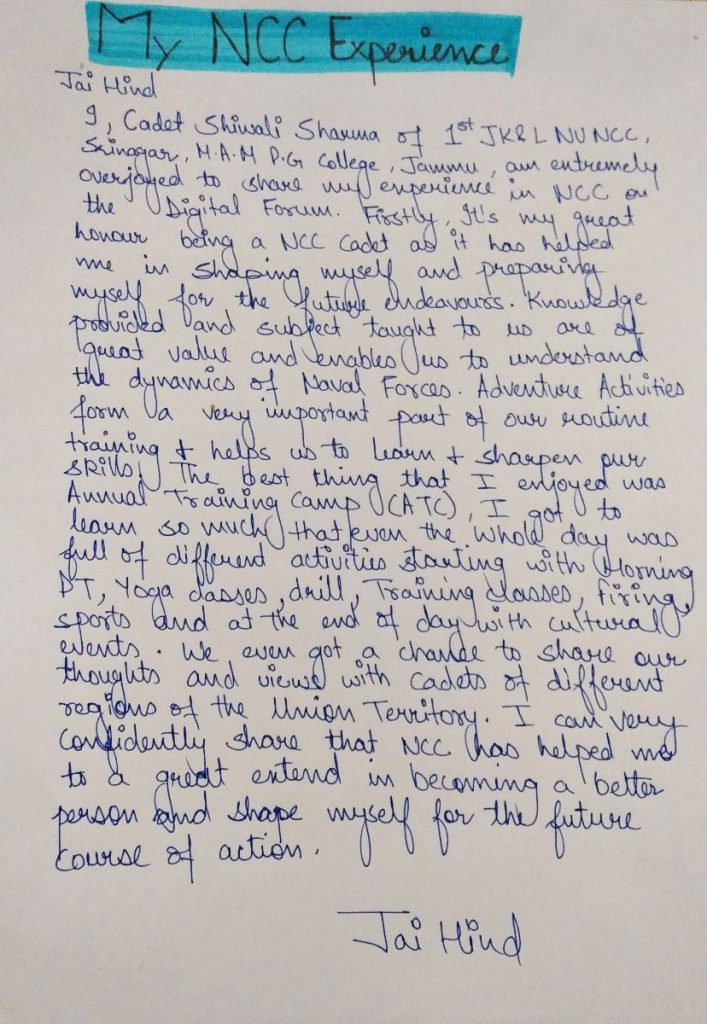 My NCC Experience
Jai Hind
I, Cadet Shiwali Sharma of 1st JK& L NU NCC,
Srinagar, M.A.M P.G College, Jammu, am extremely
overjoyed to share my experience in NCC on
the Digital Forum. Firstly, It's my great
honour being a NCC Cadet as it has helped
me in shaping myself and preparing
myself for the future endeavours. Knowledge
provided and subject taught to us are of
great value and enables us to understand
the dynamics of Naval Forces. Adventure Activities
form a very important part of our routine
training & helps us to learn & sharpen our
skills. The best thing that I enjoyed was
Annual Training Camp (ATC), I got to
learn so much that even the whole day was
full of different activities starting with Morning
PT, Yoga classes, drill, Training classes, firing,
sports and at the end of day with cultural
events. We even got a chance to share our
thoughts and views with cadets of different
regions of the Union Territory. I can very
confidently share that NCC has helped me
to a great extend in becoming a better
person and shape myself for the future
course of action.
Jai Hind